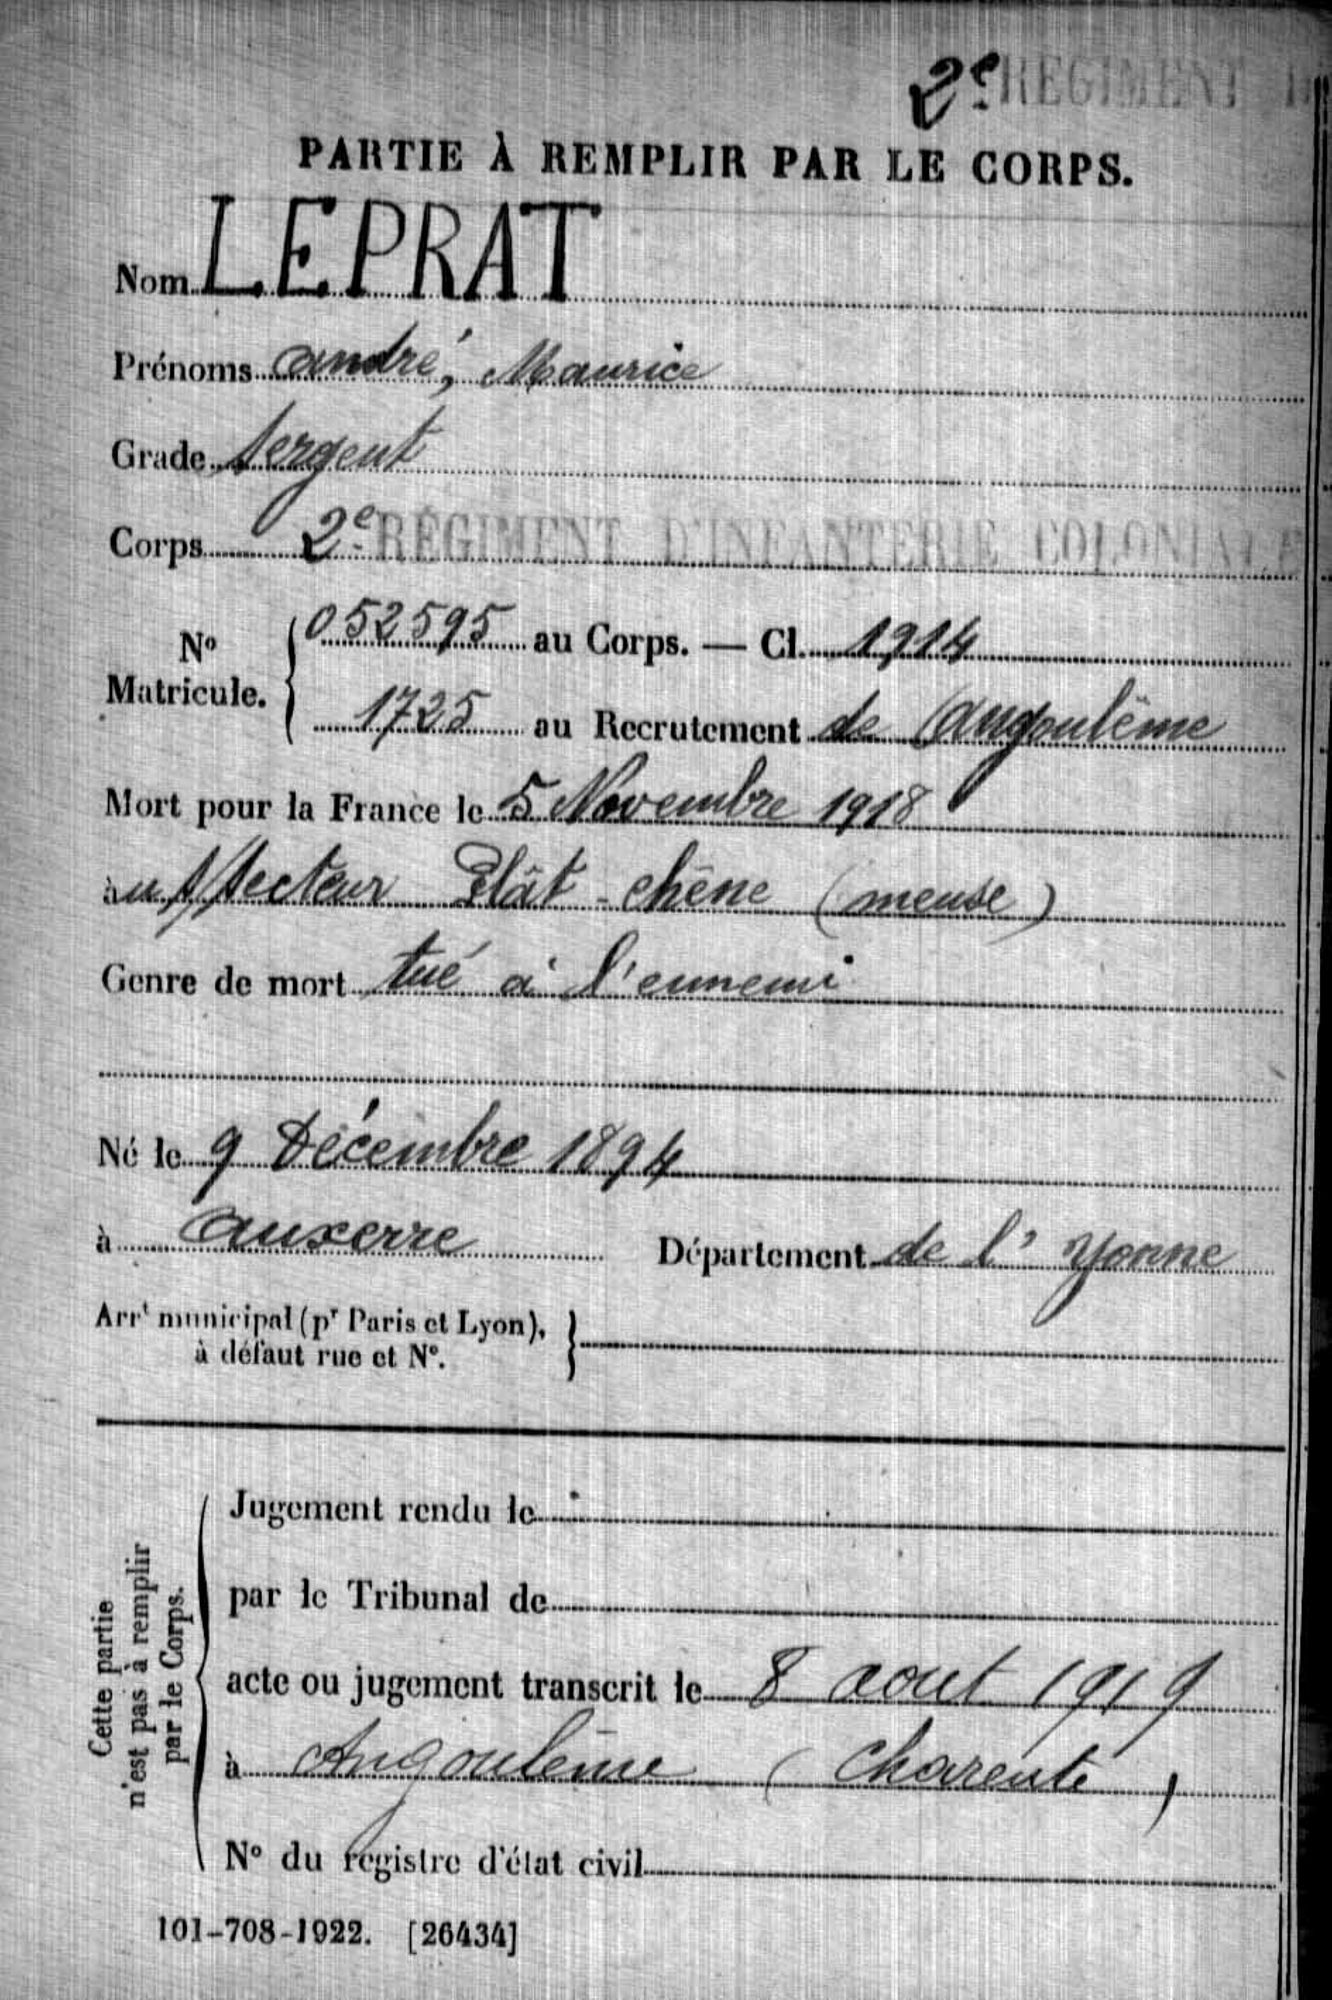 2e REGIMENT
PARTIE À REMPLIR PAR LE CORPS.
Nom LEPRAT
Prénoms andré, Maurice
Grade Sergent
Corps 2e RÉGIMENT D'INFANTERIE COLONIALE
No Matricule. { 052595 au Corps. — Cl. 1914
1725 au Recrutement de Angoulême
Mort pour la France le 5 Novembre 1918
au Secteur Plât-chêne (meuse)
Genre de mort tué à l'ennemi
Né le 9 Décembre 1894
à auxerre Département de l'Yonne
Arrt municipal (pr Paris et Lyon), à défaut rue et No. }
Cette partie n'est pas à remplir par le Corps.
Jugement rendu le
par le Tribunal de
acte ou jugement transcrit le 8 aout 1919
à Angoulême (Charente)
No du registre d'état civil
101-708-1922. [26434]